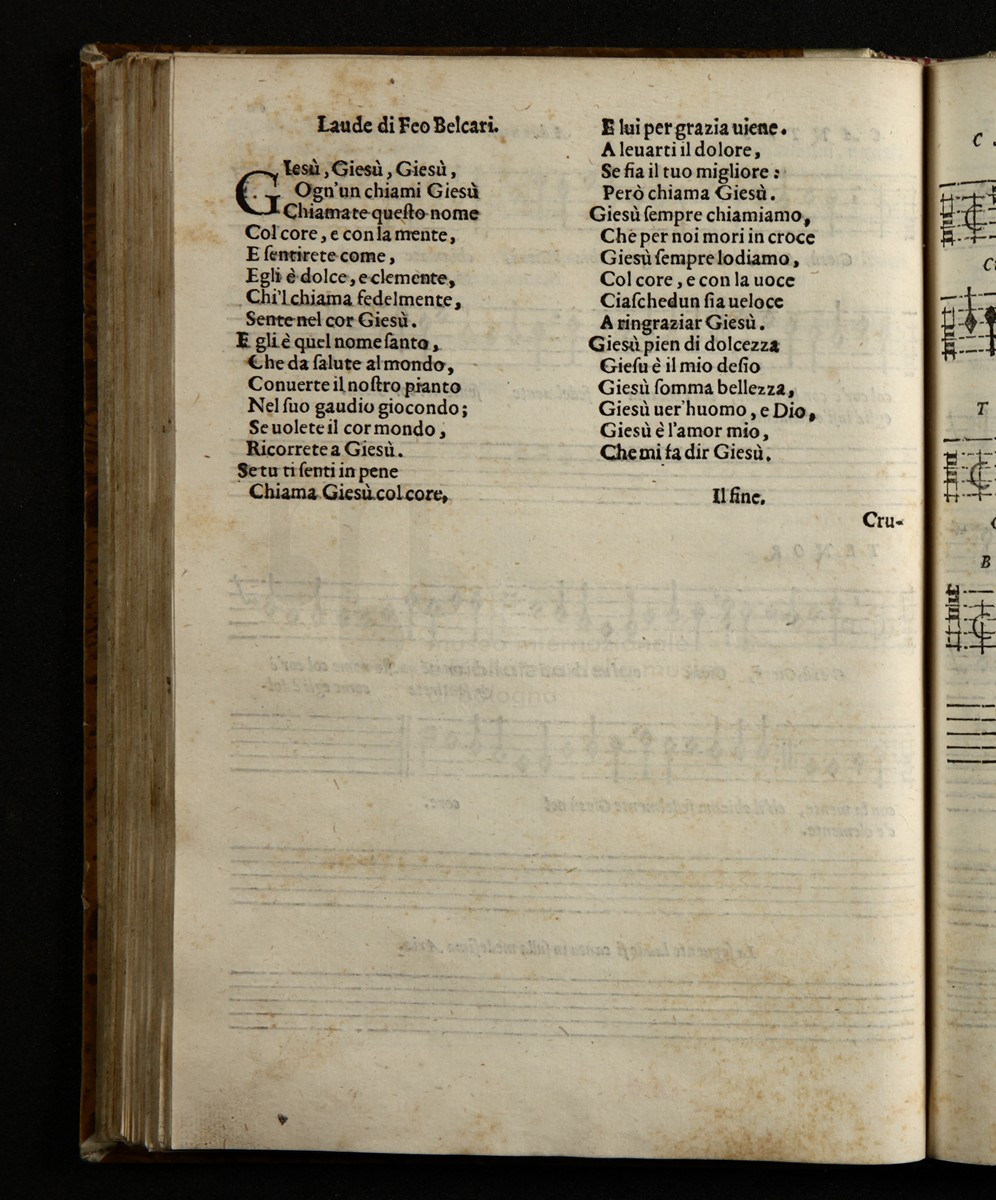 Laude di Feo Belcari.
GIesù, Giesù, Giesù,
Ogn'un chiami Giesù
Chiamate questo nome
Col core, e con la mente,
E sentirete come,
Egli è dolce, e clemente,
Chi'l chiama fedelmente,
Sente nel cor Giesù.
E gli è quel nome santo,
Che da salute al mondo,
Conuerte il nostro pianto
Nel suo gaudio giocondo;
Se uolete il cor mondo,
Ricorrete a Giesù.
Se tu ti senti in pene
Chiama Giesù col core,
E lui per grazia uiene.
A leuarti il dolore,
Se fia il tuo migliore:
Però chiama Giesù.
Giesù sempre chiamiamo,
Che per noi mori in croce
Giesù sempre lodiamo,
Col core, e con la uoce
Ciaschedun sia ueloce
A ringraziar Giesù.
Giesù pien di dolcezza
Giesu è il mio desio
Giesù somma bellezza,
Giesù uer'huomo, e Dio,
Giesù è l'amor mio,
Che mi fa dir Giesù.
Il fine.
Cru-
C
T
B